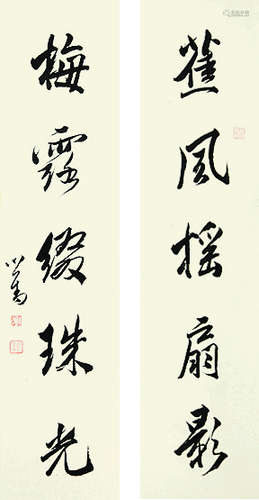 蕉風搖扇影
梅露綴珠光
心畬